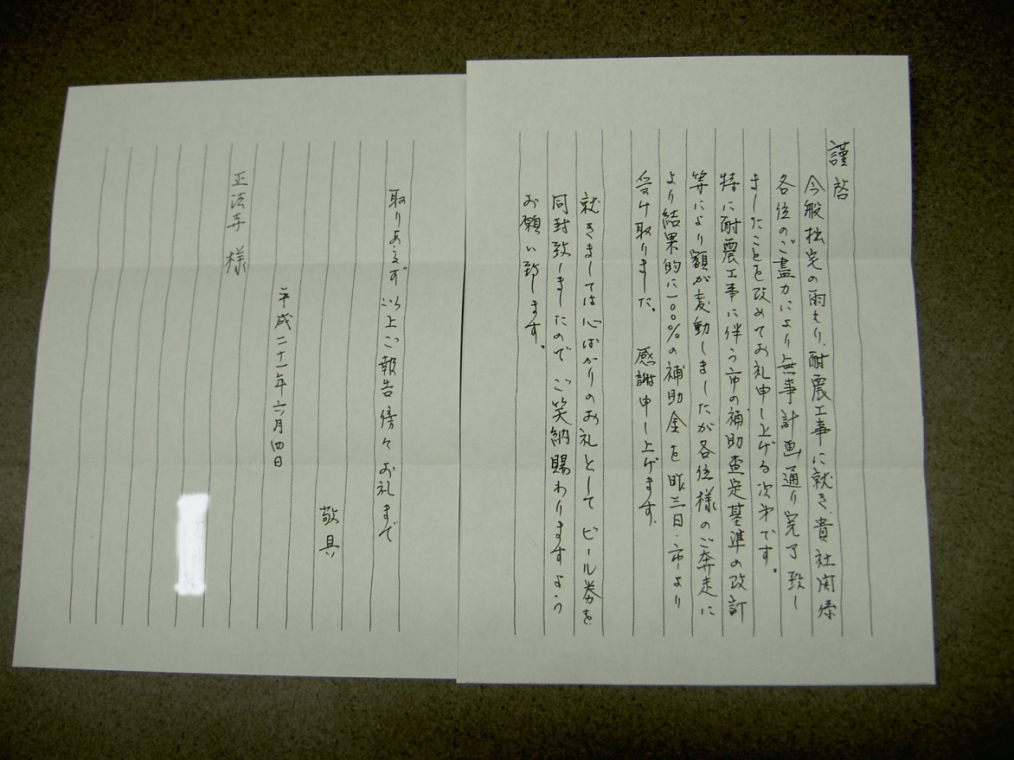 謹啓
今般拙宅の雨もり、耐震工事に就き、貴社関係
各位のご盡力により無事計画通り完了致し
ましたことを改めてお礼申し上げる次第です。
特に耐震工事に伴う市の補助査定基準の改訂
等により額が変動しましたが各位様のご奔走に
より結果的に一〇〇%の補助金を昨三日、市より
受け取りました。 感謝申し上げます。
就きましては心ばかりのお礼として ビール券を
同封致しましたので ご笑納賜わりますよう
お願い致します。
取りあえず 以上ご報告傍々お礼まで
敬具
平成二十一年六月四日
様